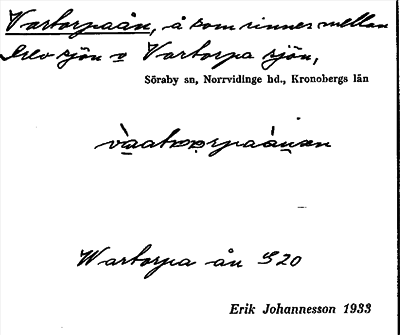 Vartorpaån, å som rinner mellan
sjön o Vartorpa sjön,
Söraby sn, Norrvidinge hd., Kronobergs län
Wartorpa ån S20
Erik Johannesson 1933